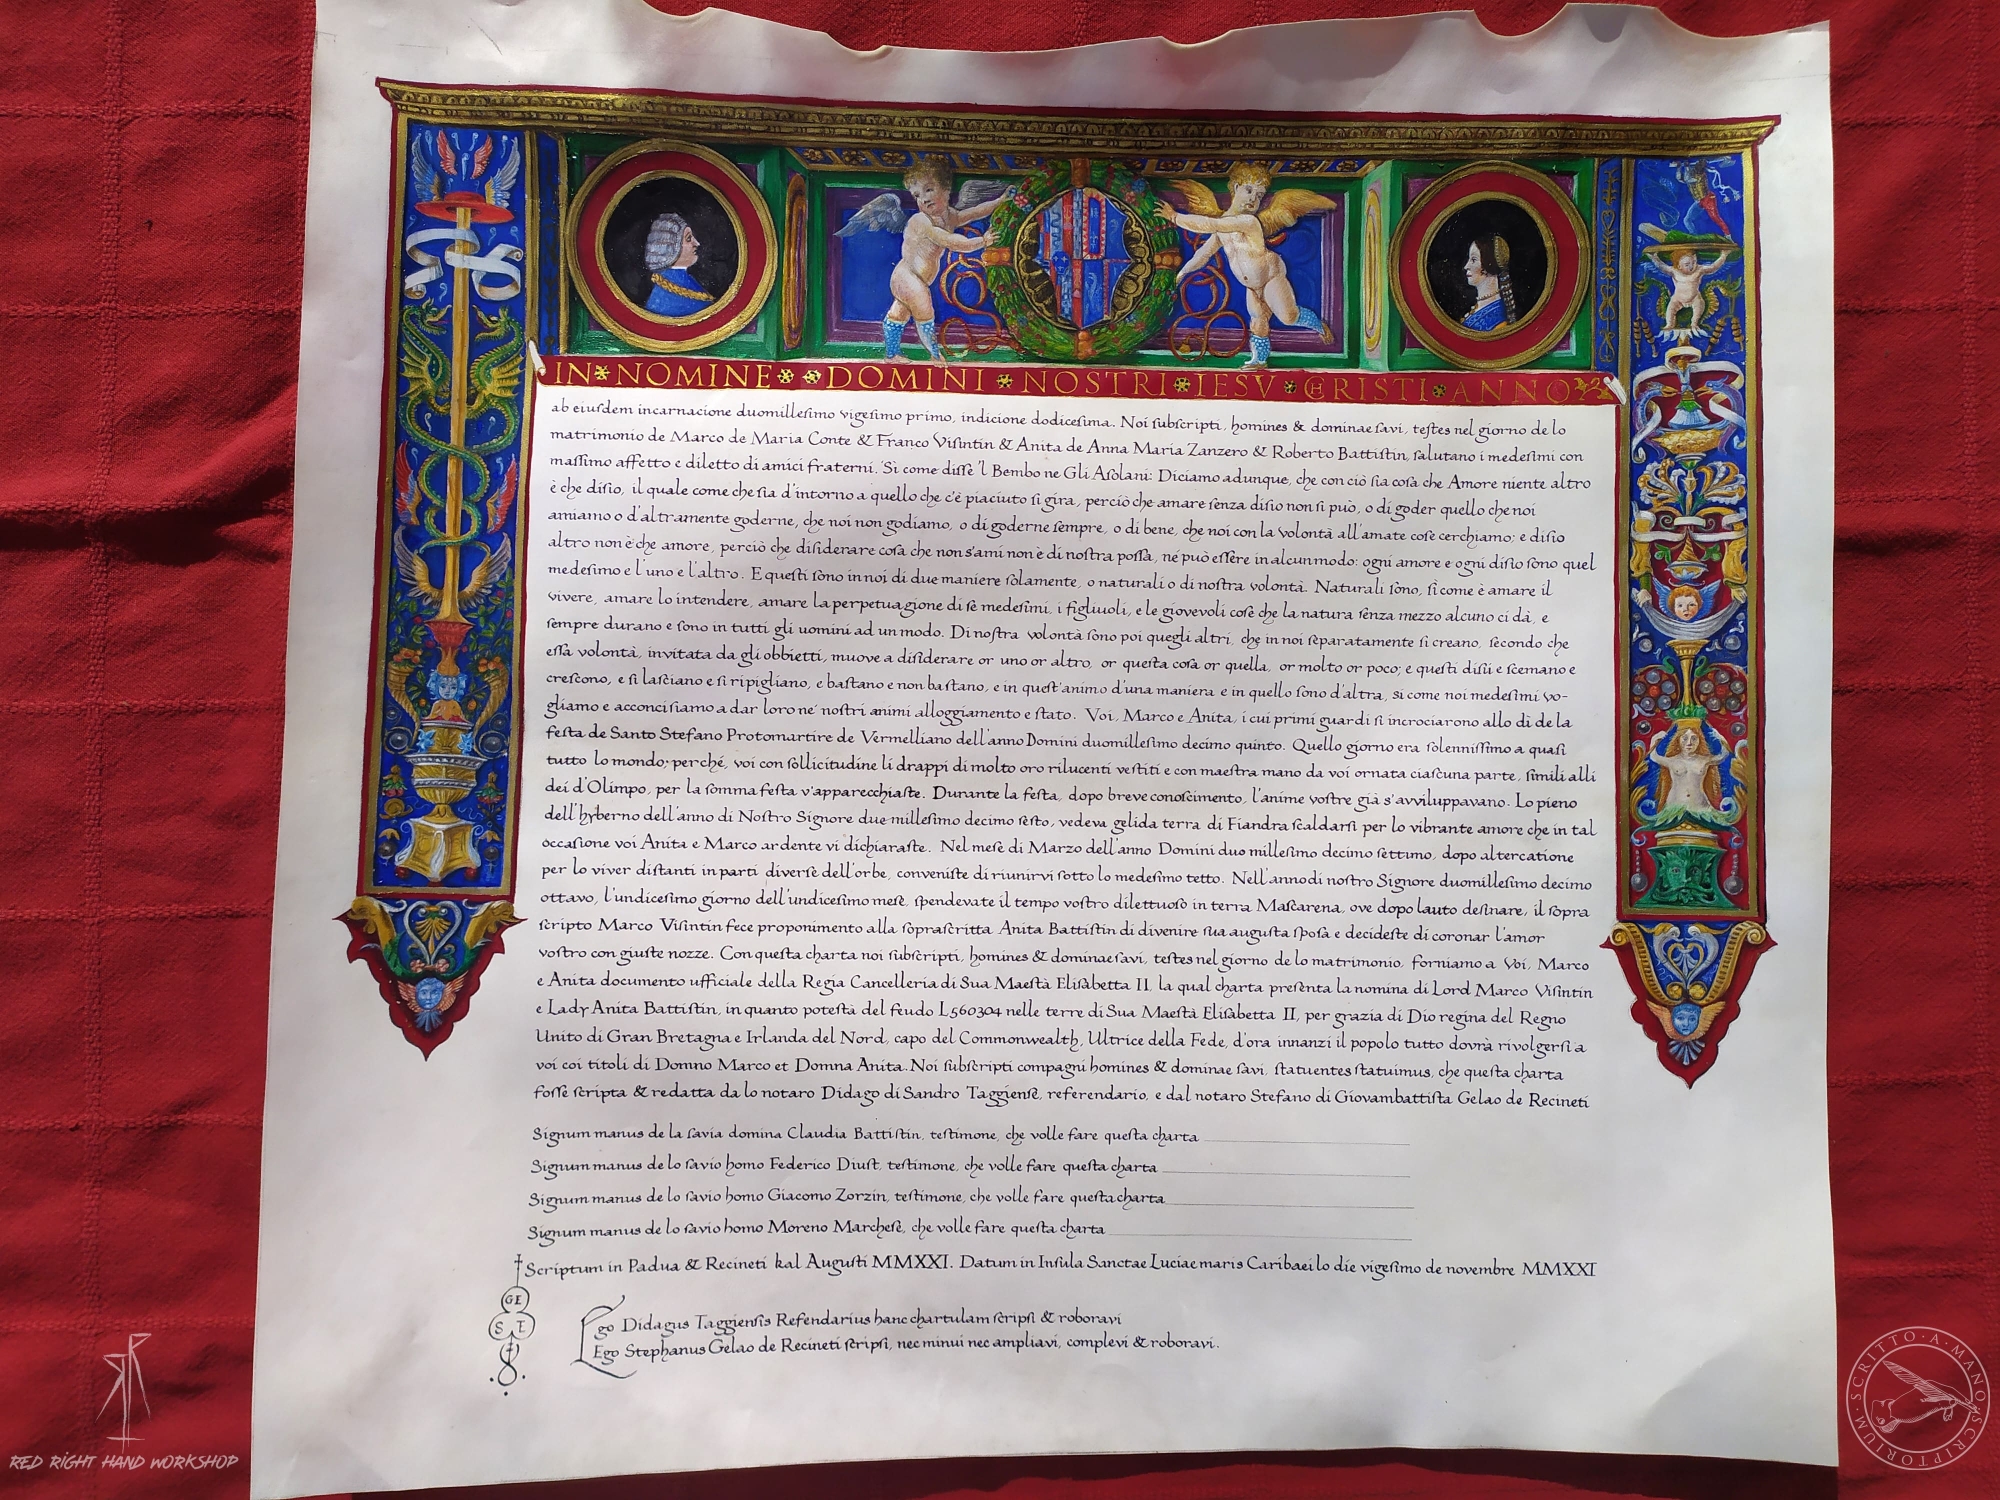 IN NOMINE DOMINI NOSTRI IESV CHRISTI ANNO
ab eiusdem incarnacione duomillesimo vigesimo primo, indicione dodicesima. Noi subscripti, homines & dominae savi, testes nel giorno de lo
matrimonio de Marco de Maria Conte & Franco Visintin & Anita de Anna Maria Zanzero & Roberto Battistin, salutano i medesimi con
massimo affetto e diletto di amici fraterni. Sì come disse 'l Bembo ne Gli Asolani: Diciamo adunque, che con ciò sia cosa che Amore niente altro
è che disio, il quale come che sia d'intorno a quello che c'è piaciuto si gira, perciò che amare senza disio non si può, o di goder quello che noi
amiamo o d'altramente goderne, che noi non godiamo, o di goderne sempre, o di bene, che noi con la volontà all'amate cose cerchiamo; e disio
altro non è che amore, perciò che disiderare cosa che non s'ami non è di nostra possa, né può essere in alcun modo: ogni amore e ogni disio sono quel
medesimo e l'uno e l'altro. E questi sono in noi di due maniere solamente, o naturali o di nostra volontà. Naturali sono, sì come è amare il
vivere, amare lo intendere, amare la perpetuagione di sè medesimi, i figliuoli, e le giovevoli cose che la natura senza mezzo alcuno ci dà, e
sempre durano e sono in tutti gli uomini ad un modo. Di nostra volontà sono poi quegli altri, che in noi separatamente si creano, secondo che
essa volontà, invitata da gli obbietti, muove a disiderare or uno or altro, or questa cosa or quella, or molto or poco; e questi disii e scemano e
crescono, e si lasciano e si ripigliano, e bastano e non bastano, e in quest'animo d'una maniera e in quello sono d'altra, sì come noi medesimi vo-
gliamo e acconci siamo a dar loro ne' nostri animi alloggiamento e stato. Voi, Marco e Anita, i cui primi guardi si incrociarono allo dì de la
festa de Santo Stefano Protomartire de Vermelliano dell'anno Domini duomillesimo decimo quinto. Quello giorno era solennissimo a quasi
tutto lo mondo; perché, voi con sollicitudine li drappi di molto oro rilucenti vestiti e con maestra mano da voi ornata ciascuna parte, simili alli
dei d'Olimpo, per la somma festa v'apparecchiaste. Durante la festa, dopo breve conoscimento, l'anime vostre già s'avviluppavano. Lo pieno
dell'hyberno dell'anno di Nostro Signore due millesimo decimo sesto, vedeva gelida terra di Fiandra scaldarsi per lo vibrante amore che in tal
occasione voi Anita e Marco ardente vi dichiaraste. Nel mese di Marzo dell'anno Domini duo millesimo decimo settimo, dopo altercatione
per lo viver distanti in parti diverse dell'orbe, conveniste di riunirvi sotto lo medesimo tetto. Nell'anno di nostro Signore duomillesimo decimo
ottavo, l'undicesimo giorno dell'undicesimo mese, spendevate il tempo vostro dilettuoso in terra Mascarena, ove dopo lauto desinare, il sopra
scripto Marco Visintin fece proponimento alla soprascritta Anita Battistin di divenire sua augusta sposa e decideste di coronar l'amor
vostro con giuste nozze. Con questa charta noi subscripti, homines & dominae savi, testes nel giorno de lo matrimonio, forniamo a Voi, Marco
e Anita documento ufficiale della Regia Cancelleria di Sua Maestà Elisabetta II, la qual charta presenta la nomina di Lord Marco Visintin
e Lady Anita Battistin, in quanto potestà del feudo L560304 nelle terre di Sua Maestà Elisabetta II, per grazia di Dio regina del Regno
Unito di Gran Bretagna e Irlanda del Nord, capo del Commonwealth, Ultrice della Fede, d'ora innanzi il popolo tutto dovrà rivolgersi a
voi coi titoli di Domno Marco et Domna Anita. Noi subscripti compagni homines & dominae savi, statuentes statuimus, che questa charta
fosse scripta & redatta da lo notaro Didago di Sandro Taggiense, referendario, e dal notaro Stefano di Giovambattista Gelao de Recineti
Signum manus de la savia domina Claudia Battistin, testimone, che volle fare questa charta
Signum manus de lo savio homo Federico Diust, testimone, che volle fare questa charta
Signum manus de lo savio homo Giacomo Zorzin, testimone, che volle fare questa charta
Signum manus de lo savio homo Moreno Marchese, che volle fare questa charta
Scriptum in Padua & Recineti kal Augusti MMXXI. Datum in Insula Sanctae Luciae maris Caribaei lo die vigesimo de novembre MMXXI
GE
S T
Ego Didagus Taggiensis Refendarius hanc chartulam scripsi & roboravi
Ego Stephanus Gelao de Recineti scripsi, nec minui nec ampliavi, complevi & roboravi.
RED RIGHT HAND WORKSHOP
SCRITTO·A·MANO SCRIPTORIUM